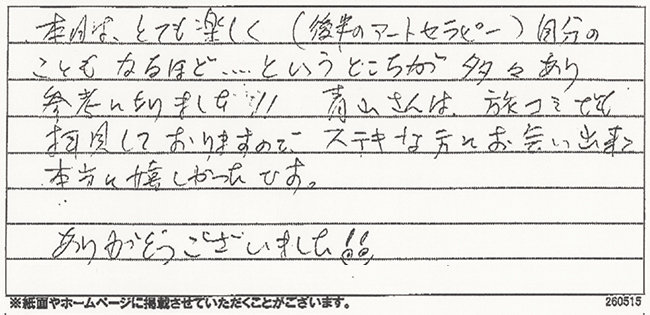 本日は、とても楽しく（後半のアートセラピー）自分の
こともなるほど‥‥というところが多々あり
参考になりました!! 青山さんは、旅コミでも
拝見しておりますので、ステキな方にお会い出来て
本当に嬉しかったです。
ありがとうございました!!
※紙面やホームページに掲載させていただくことがございます。
260515